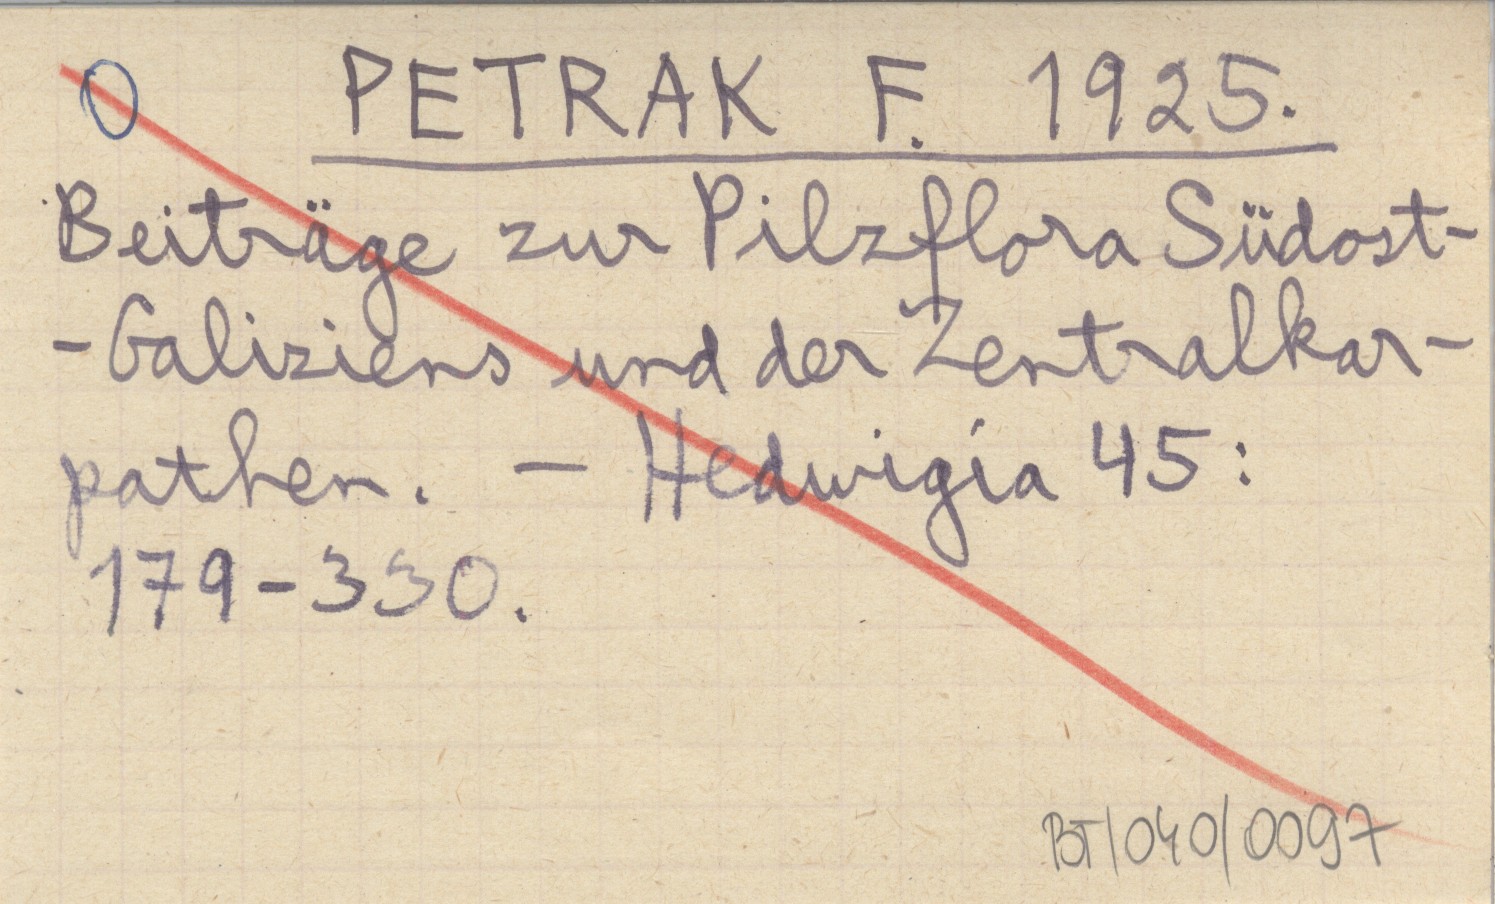 O PETRAK F. 1925.
Beiträge zur Pilzflora Südost-
-Galiziens und der Zentralkar-
pathen. - Hedwigia 45:
179-330.
BT/040/0097